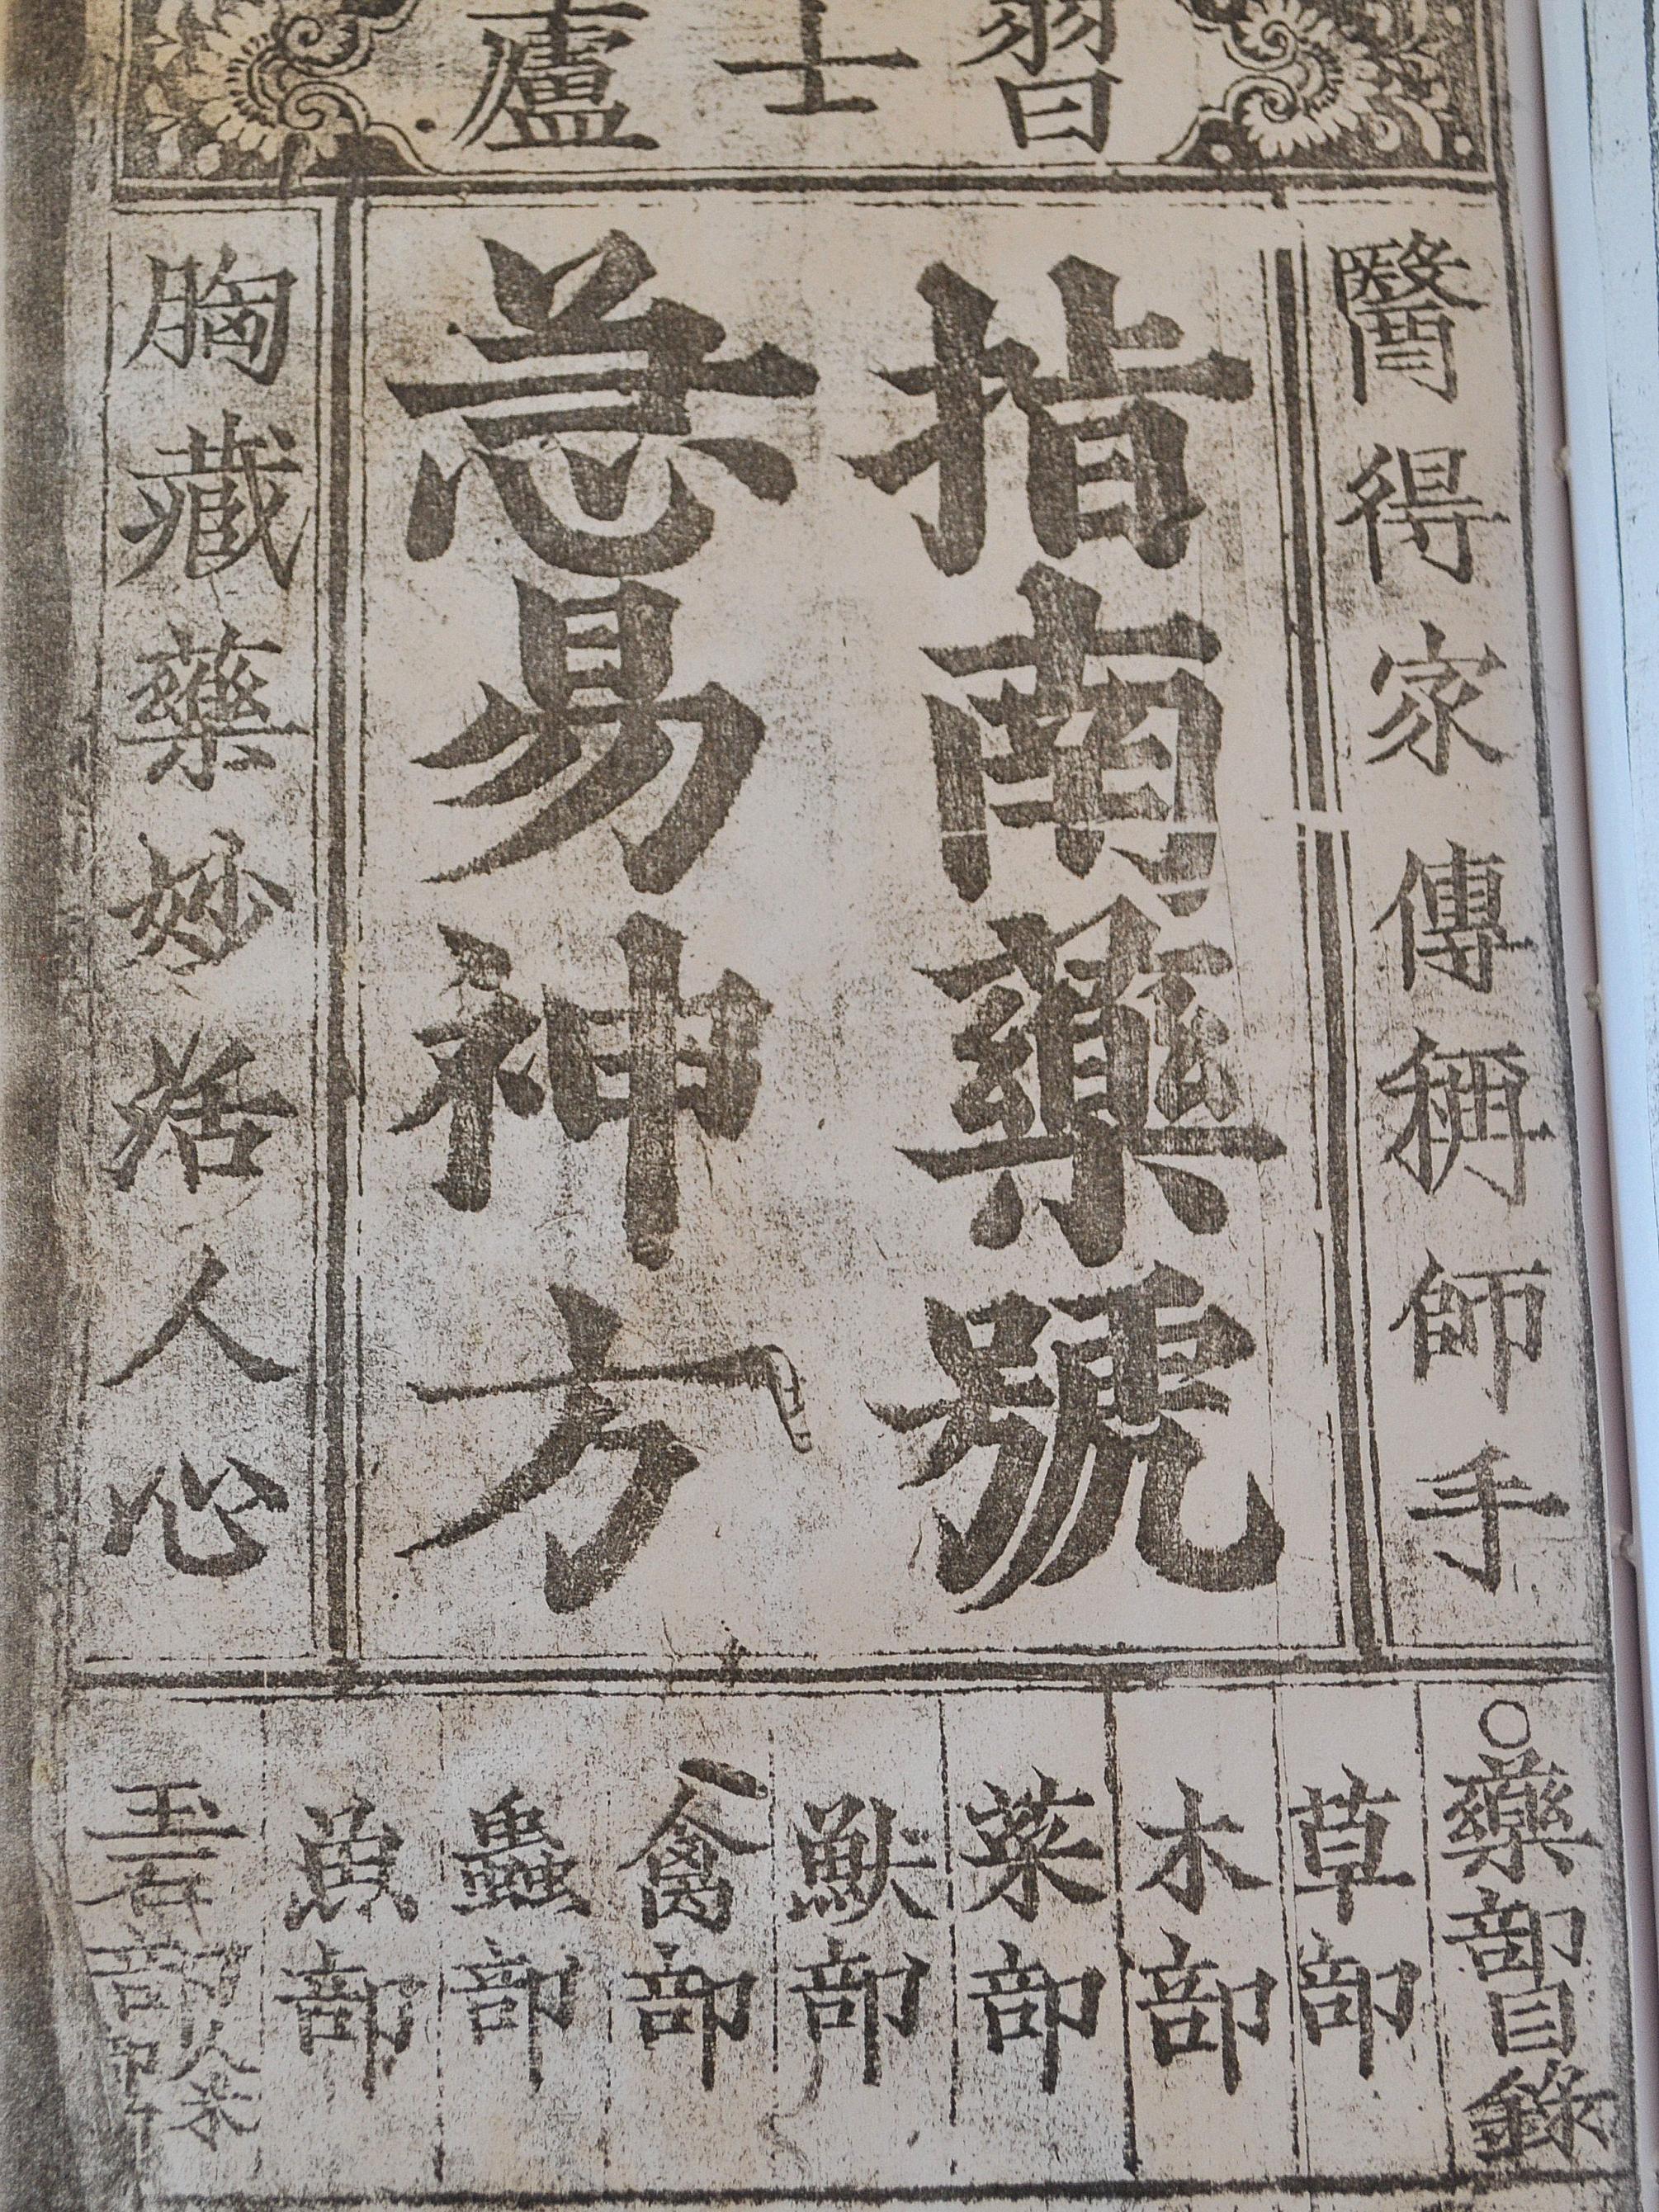 習
士
廬
醫得家傳稱師手
指南藥號
急易神方
胸藏藥妙活人心
○藥部目錄
草部
木部
菜部
獸部
禽部
蟲部
魚部
玉石部